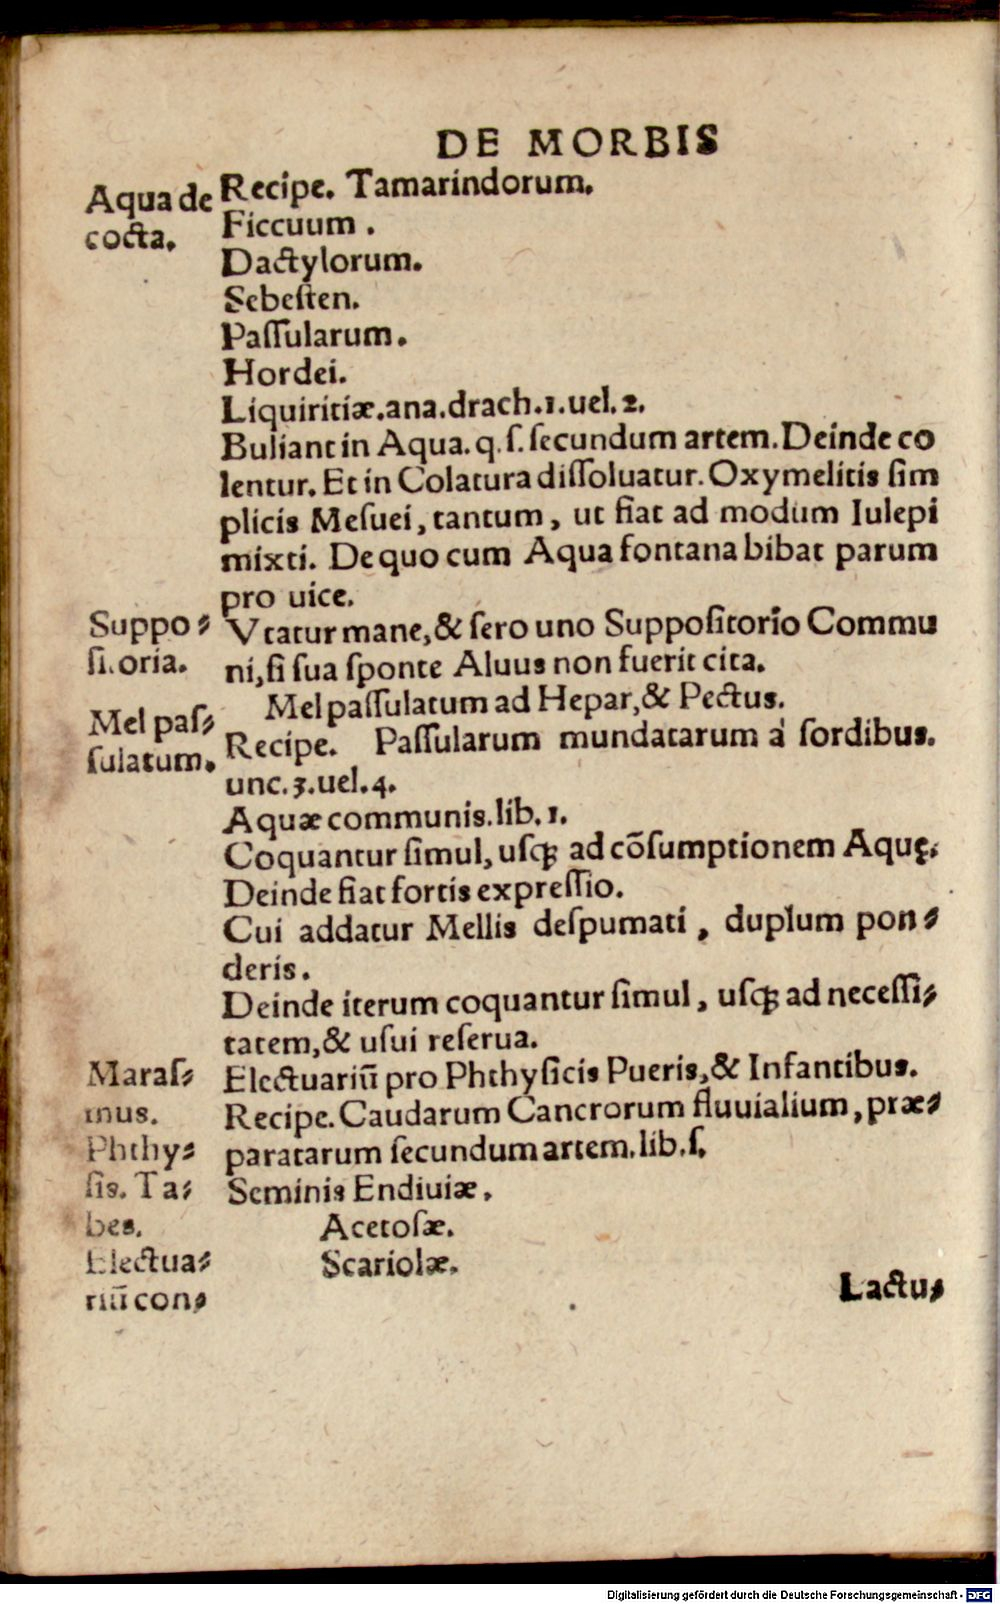 DE MORBIS
Aqua de
cocta.
Recipe. Tamarindorum.
Ficcuum.
Dactylorum.
Sebeſten.
Paſſularum.
Hordei.
Liquiritiæ.ana.drach.1.uel.2.
Buliant in Aqua.q.ſ.ſecundum artem.Deinde co
lentur. Et in Colatura diſſoluatur. Oxymelitis ſim
plicis Meſuei, tantum, ut fiat ad modum Iulepi
mixti. De quo cum Aqua fontana bibat parum
pro uice.
Suppo⸗
ſitoria.
Vtatur mane,& ſero uno Suppoſitorio Commu
ni,ſi ſua ſponte Aluus non fuerit cita.
Mel paſſulatum ad Hepar,& Pectus.
Mel paſ⸗
ſulatum.
Recipe. Paſſularum mundatarum à ſordibus.
unc.3.uel.4.
Aquæ communis.lib.1.
Coquantur ſimul, uſqꝫ ad cõſumptionem Aquę.
Deinde fiat fortis expreſſio.
Cui addatur Mellis deſpumati, duplum pon⸗
deris.
Deinde iterum coquantur ſimul, uſqꝫ ad neceſſi⸗
tatem,& uſui reſerua.
Maraſ⸗
mus.
Phthy⸗
ſis. Ta⸗
bes.
Electua⸗
riũ con⸗
Electuariũ pro Phthyſicis Pueris,& Infantibus.
Recipe. Caudarum Cancrorum fluuialium, præ⸗
paratarum ſecundum artem.lib.ſ.
Seminis Endiuiæ.
Acetoſæ.
Scariolæ.
Lactu⸗
Digitalisierung gefördert durch die Deutsche Forschungsgemeinschaft - DFG